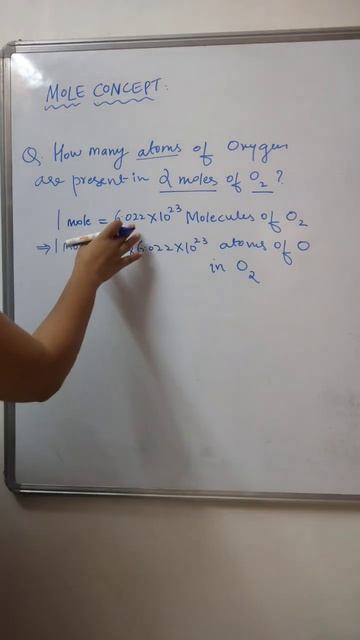 MOLE CONCEPT:
Q. How many atoms of Oxygen
are present in 2 moles of O₂?
1 mole = 6.022×10²³ Molecules of O₂
⇒ 1 ×6.022×10²³ atoms of O
in O₂